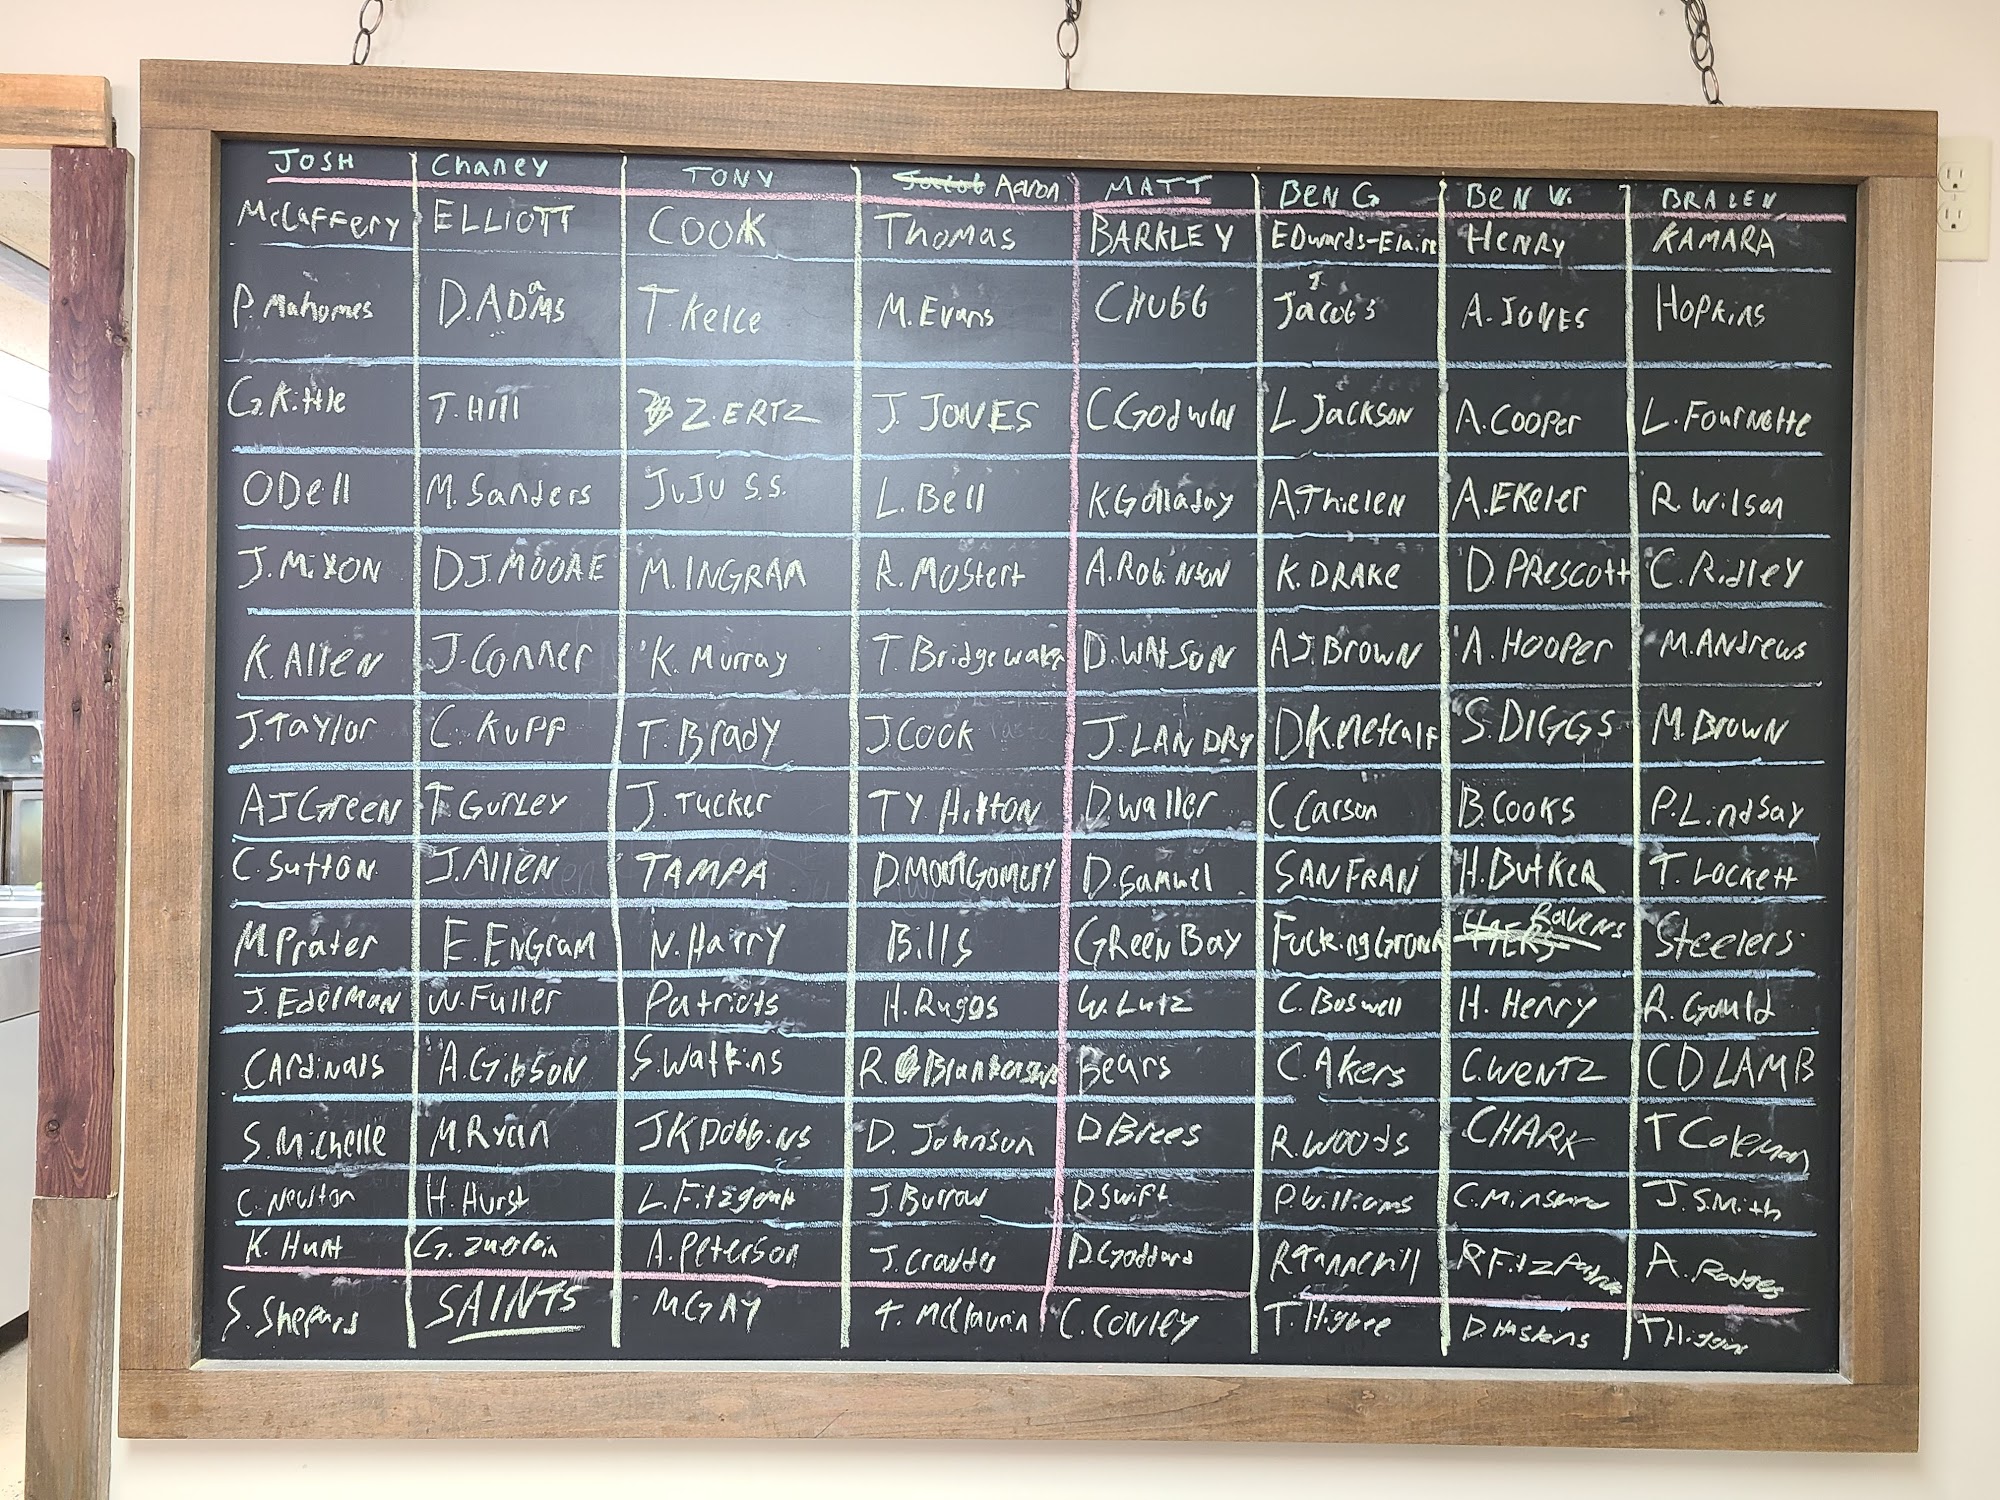 JOSH Chaney TONY Jacob Aaron MATT BEN G BEN W. BRALEN
McCaffery ELLIOTT COOK Thomas BARKLEY EDwards-Elaire HENRy KAMARA
P. Mahomes D. ADaMS T. Kelce M. Evans CHUBB J Jacobs A. JONES HOPKins
G. Kittle T. Hill ZERTZ J. JONES C. Godwin L Jackson A. Cooper L. Fournette
ODell M. Sanders JuJu S.S. L. Bell K. Golladay A. Thielen A. EKeler R. Wilson
J. MiXON DJ. MOORE M. INGRAM R. Mostert A. Robinson K. DRAKE D. PRescott C. Ridley
K. Allen J. Conner K. Murray T. Bridgewater D. WATSON AJ. Brown A. HOOPER M. Andrews
J. Taylor C. Kupp T. Brady J. Cook J. LANDRY DK. Metcalf S. DIGGS M. Brown
AJ Green T Gurley J. Tucker TY Hilton D Waller C Carson B. Cooks P. Lindsay
C. Sutton J. Allen TAMPA D. MONTGOMERY D. Samuel SANFRAN H. Butker T. Lockett
M. Prater E. Engram N. Harry Bills Green Bay Fucking Gronk Ravens Steelers
J. Edelman W. Fuller Patriots H. Ruggs W. Lutz C. Boswell H. Henry R. Gould
CArdinals A. Gibson S. Watkins R. Blankenship Bears C. Akers C. WENTZ CD LAMB
S. Michelle M. Ryan JK Dobbins D. Johnson D Brees R. Woods CHARK T Coleman
C. Newton H. Hurst L. Fitzgerald J. Burrow D. Swift P. Williams C. Minshew J. Smith
K. Hunt G. Zuerlein A. Peterson J. Crowder D. Goddard R Tannehill R Fitzpatrick A. Rodgers
S. Shepard SAINTS M. GAY T. McClaurin C. CONLEY T. Higbee D Haskins